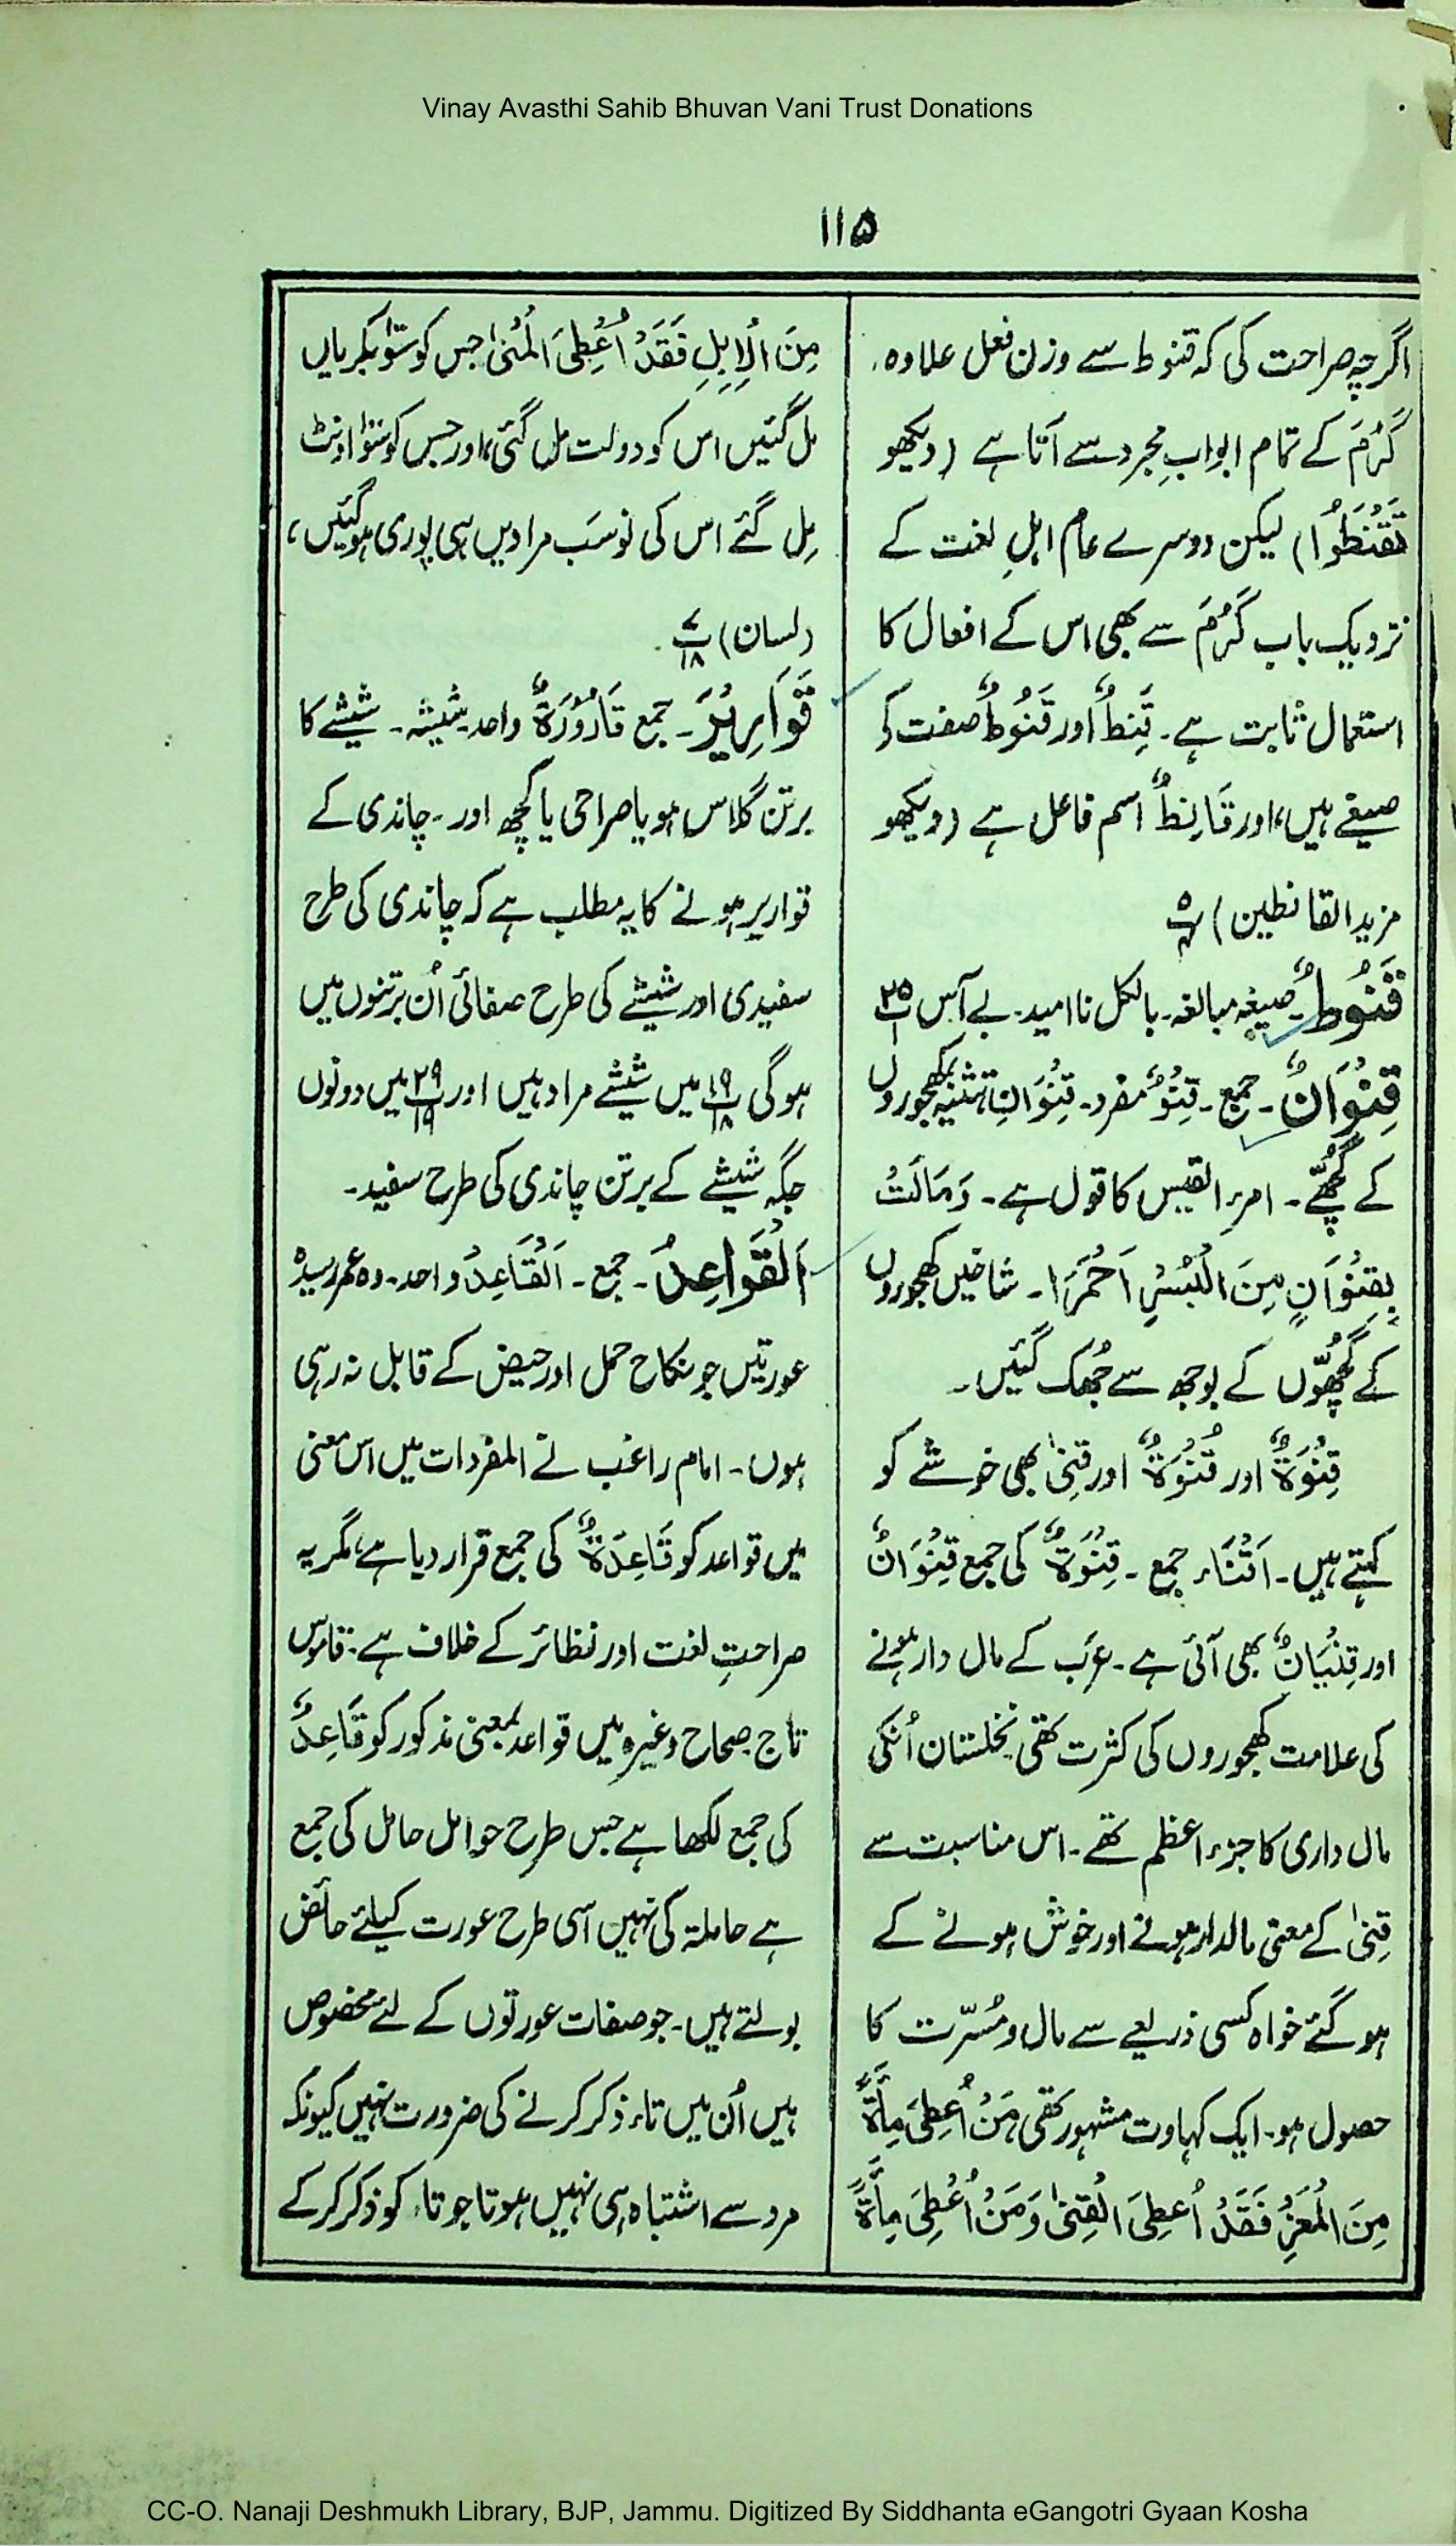 Vinay Avasthi Sahib Bhuvan Vani Trust Donations
۱۱۵
اگرچہ صراحت کی کہ قنوط سے وزن فعل علاوہ
کَرُمَ کے تمام ابوابِ مجرد سے آتا ہے (دیکھو
تَقْنَطُوْا) لیکن دوسرے عام اہلِ لغت کے
نزدیک باب کَرُمَ سے بھی اس کے افعال کا
استعمال ثابت ہے۔ قَنِطٌ اور قَنُوْطٌ صفت کے
صیغے ہیں، اور قَانِطٌ اسم فاعل ہے (دیکھو
مزید القانطین)
قَنُوْطٌ۔ صیغہ مبالغہ۔ بالکل ناامید۔ بے آس
قِنْوَانٌ۔ جمع۔ قِنْوٌ مفرد۔ قِنْوَانِ تثنیہ کھجوروں
کے گچھے۔ امرء القیس کا قول ہے۔ وَمَالَتْ
بِقِنْوَانٍ مِنَ الْبُسْرِ اَحْمَرَا۔ شاخیں کھجوروں
کے گچھوں کے بوجھ سے جُھک گئیں۔
قِنْوَةٌ اور قُنْوَةٌ اور قِنیٰ بھی خوشے کو
کہتے ہیں۔ اَقْنَاء جمع۔ قِنْوَةٌ کی جمع قِنْوَانٌ
اور قِنْیَانٌ بھی آئی ہے۔ عرَب کے مال دار ہونے
کی علامت کھجوروں کی کثرت تھی نخلستان اُنکی
مال داری کا جزء اعظم تھے۔ اس مناسبت سے
قِنیٰ کے معنی مالدار ہونے اور خوش ہونے کے
ہو گئے خواہ کسی ذریعے سے مال و مُسرّت کا
حصول ہو۔ ایک کہاوت مشہور تھی مَنْ اُعْطِیَ مِأَةً
مِنَ الْمَعْزِ فَقَدْ اُعْطِیَ الْقِنیٰ وَمَنْ اُعْطِیَ مِأَةً
مِنَ الْاِبِلِ فَقَدْ اُعْطِیَ الْمُنیٰ جس کو سَوْ بکریاں
مل گئیں اس کو دولت مل گئی، اور جس کو سَوْ اونٹ
مِل گئے اس کی تو سَب مرادیں ہی پوری ہو گئیں،
(لسان)
قَوَارِیْرَ۔ جمع قَارُوْرَةٌ واحد۔ شیشہ۔ شیشے کا
برتن گلاس ہو یا صراحی یا کچھ اور۔ چاندی کے
قواریر ہونے کا یہ مطلب ہے کہ چاندی کی طرح
سفیدی اور شیشے کی طرح صفائی اُن برتنوں میں
ہوگی ۱۹/۱۸ میں شیشے مراد ہیں اور ۲۹/۱۹ میں دونوں
جگہ شیشے کے برتن چاندی کی طرح سفید۔
اَلْقَوَاعِدُ۔ جمع۔ اَلْقَاعِدُ واحد۔ وہ عمر رسیدہ
عورتیں جو نکاح حمل اور حیض کے قابل نہ رہی
ہوں۔ امام راغب نے المفردات میں اس معنی
میں قواعد کو قَاعِدَةٌ کی جمع قرار دیا ہے، مگر یہ
صراحتِ لغت اور نظائر کے خلاف ہے۔ قاموس
تاج صحاح وغیرہ میں قواعد بمعنی مذکور کو قَاعِدٌ
کی جمع لکھا ہے جس طرح حوامل حامل کی جمع
ہے حاملۃ کی نہیں اسی طرح عورت کیلئے حائض
بولتے ہیں۔ جو صفات عورتوں کے لئے مخصوص
ہیں اُن میں تاء ذکر کرنے کی ضرورت نہیں کیونکہ
مرد سے اشتباہ ہی نہیں ہوتا جو تاء کو ذکر کرکے
CC-O. Nanaji Deshmukh Library, BJP, Jammu. Digitized By Siddhanta eGangotri Gyaan Kosha